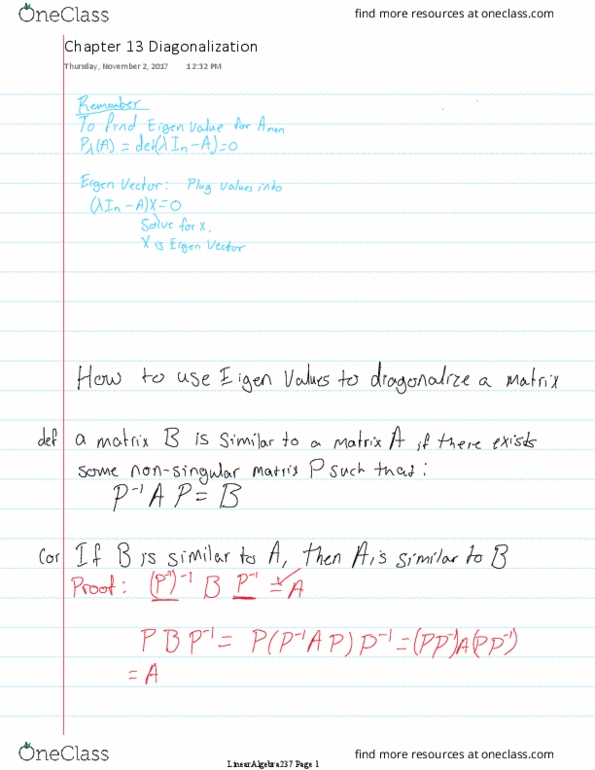 OneClass
find more resources at oneclass.com
Chapter 13 Diagonalization
Thursday, November 2, 2017 12:32 PM
Remember
To Find Eigen Value for Anxn
Pλ(A) = det(λIn-A)=0
Eigen Vector: Plug values into
(λIn-A)X=0
Solve for x,
X is Eigen Vector
How to use Eigen Values to diagonalize a matrix
def a matrix B is similar to a matrix A if there exists
some non-singular matrix P such that:
P⁻¹AP=B
Cor If B is similar to A, then A is similar to B
Proof: (P⁻¹)⁻¹ B P⁻¹ = A
PBP⁻¹ = P(P⁻¹AP)P⁻¹=(PP⁻¹)A(PP⁻¹)
= A
OneClass
find more resources at oneclass.com
LinearAlgebra237 Page 1